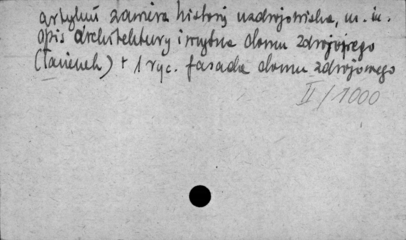 artykuł zawiera historię uzdrojowiska, m. in.
opis architektury i wnętrz domu zdrojowego
(Łazienek) + 1 ryc. fasada domu zdrojowego
II/1000